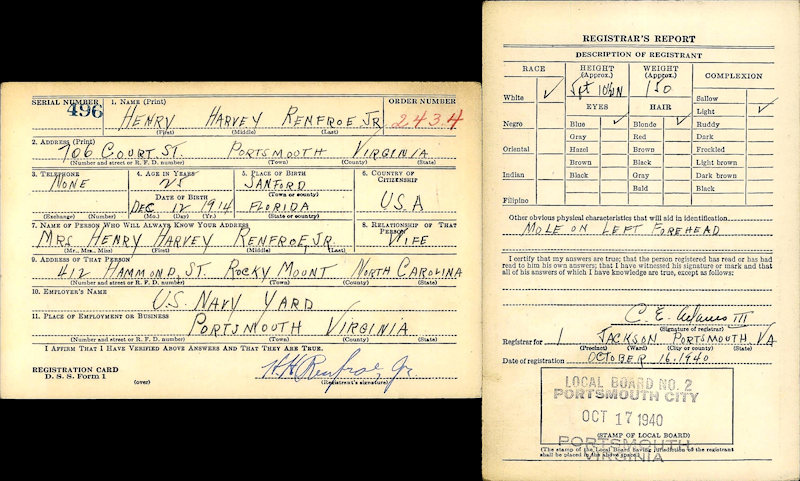 SERIAL NUMBER 1. NAME (Print) ORDER NUMBER
496 HENRY HARVEY RENFROE, JR 2434
(First) (Middle) (Last)
2. ADDRESS (Print)
706 COURT ST. PORTSMOUTH VIRGINIA
(Number and street or R. F. D. number) (Town) (County) (State)
3. TELEPHONE 4. AGE IN YEARS 5. PLACE OF BIRTH 6. COUNTRY OF CITIZENSHIP
NONE 25 SANFORD USA
DATE OF BIRTH (Town or county)
DEC 12 1914 FLORIDA
(Exchange) (Number) (Mo.) (Day) (Yr.) (State or country)
7. NAME OF PERSON WHO WILL ALWAYS KNOW YOUR ADDRESS 8. RELATIONSHIP OF THAT PERSON
MRS HENRY HARVEY RENFROE, JR. WIFE
(Mr., Mrs., Miss) (First) (Middle) (Last)
9. ADDRESS OF THAT PERSON
412 HAMMOND, ST. ROCKY MOUNT NORTH CAROLINA
(Number and street or R. F. D. number) (Town) (County) (State)
10. EMPLOYER'S NAME
U.S. NAVY YARD
11. PLACE OF EMPLOYMENT OR BUSINESS
PORTSMOUTH VIRGINIA
(Number and street or R. F. D. number) (Town) (County) (State)
I AFFIRM THAT I HAVE VERIFIED ABOVE ANSWERS AND THAT THEY ARE TRUE.
REGISTRATION CARD
D. S. S. Form 1 (over) H H Renfroe, Jr.
(Registrant's signature)
REGISTRAR'S REPORT
DESCRIPTION OF REGISTRANT
RACE HEIGHT (Approx.) WEIGHT (Approx.) COMPLEXION
White ✓ 5ft 10½IN 150 Sallow
EYES HAIR Light ✓
Negro Blue ✓ Blonde ✓ Ruddy
Gray Red Dark
Oriental Hazel Brown Freckled
Brown Black Light brown
Indian Black Gray Dark brown
Bald Black
Filipino
Other obvious physical characteristics that will aid in identification
MOLE ON LEFT FOREHEAD
I certify that my answers are true; that the person registered has read or has had
read to him his own answers; that I have witnessed his signature or mark and that
all of his answers of which I have knowledge are true, except as follows:
C. E. III
(Signature of registrar)
Registrar for 1 JACKSON PORTSMOUTH VA
(Precinct) (Ward) (City or county) (State)
Date of registration OCTOBER 16, 1940
LOCAL BOARD NO. 2
PORTSMOUTH CITY
OCT 17 1940
(STAMP OF LOCAL BOARD)
PORTSMOUTH
(The stamp of the Local Board having jurisdiction of the registrant
shall be placed in the above space.)
VIRGINIA